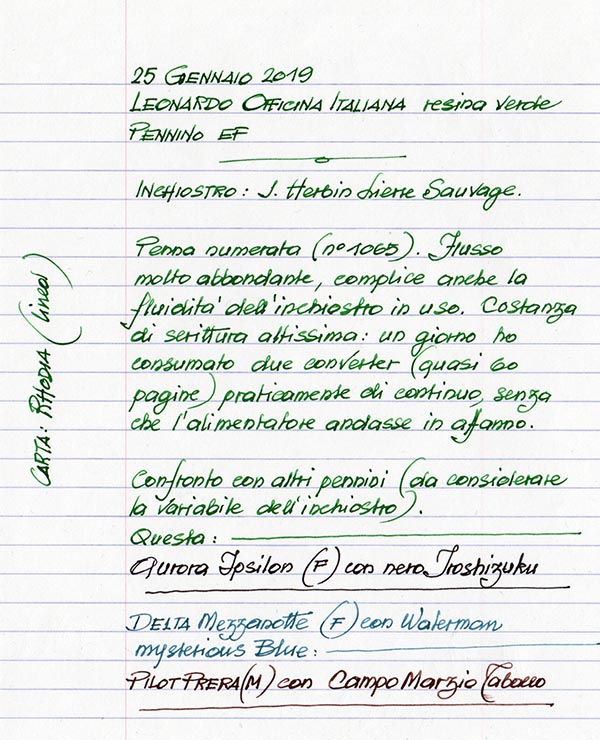 25 GENNAIO 2019
LEONARDO OFFICINA ITALIANA resina verde
PENNINO EF
INCHIOSTRO: J. Herbin Lierre Sauvage.
Penna numerata (n° 1065). Flusso
molto abbondante, complice anche la
fluidità dell'inchiostro in uso. Costanza
di scrittura altissima: un giorno ho
consumato due converter (quasi 60
pagine) praticamente di continuo, senza
che l'alimentatore andasse in affanno.
CARTA: RHODIA (linea)
Confronto con altri pennini (da considerare
la variabile dell'inchiostro).
Questa:
Aurora Ipsilon (F) con nero Iroshizuku
DELTA Mezzanotte (F) con Waterman
mysterious Blue:
PILOT PRERA (M) con Campo Marzio Tabacco